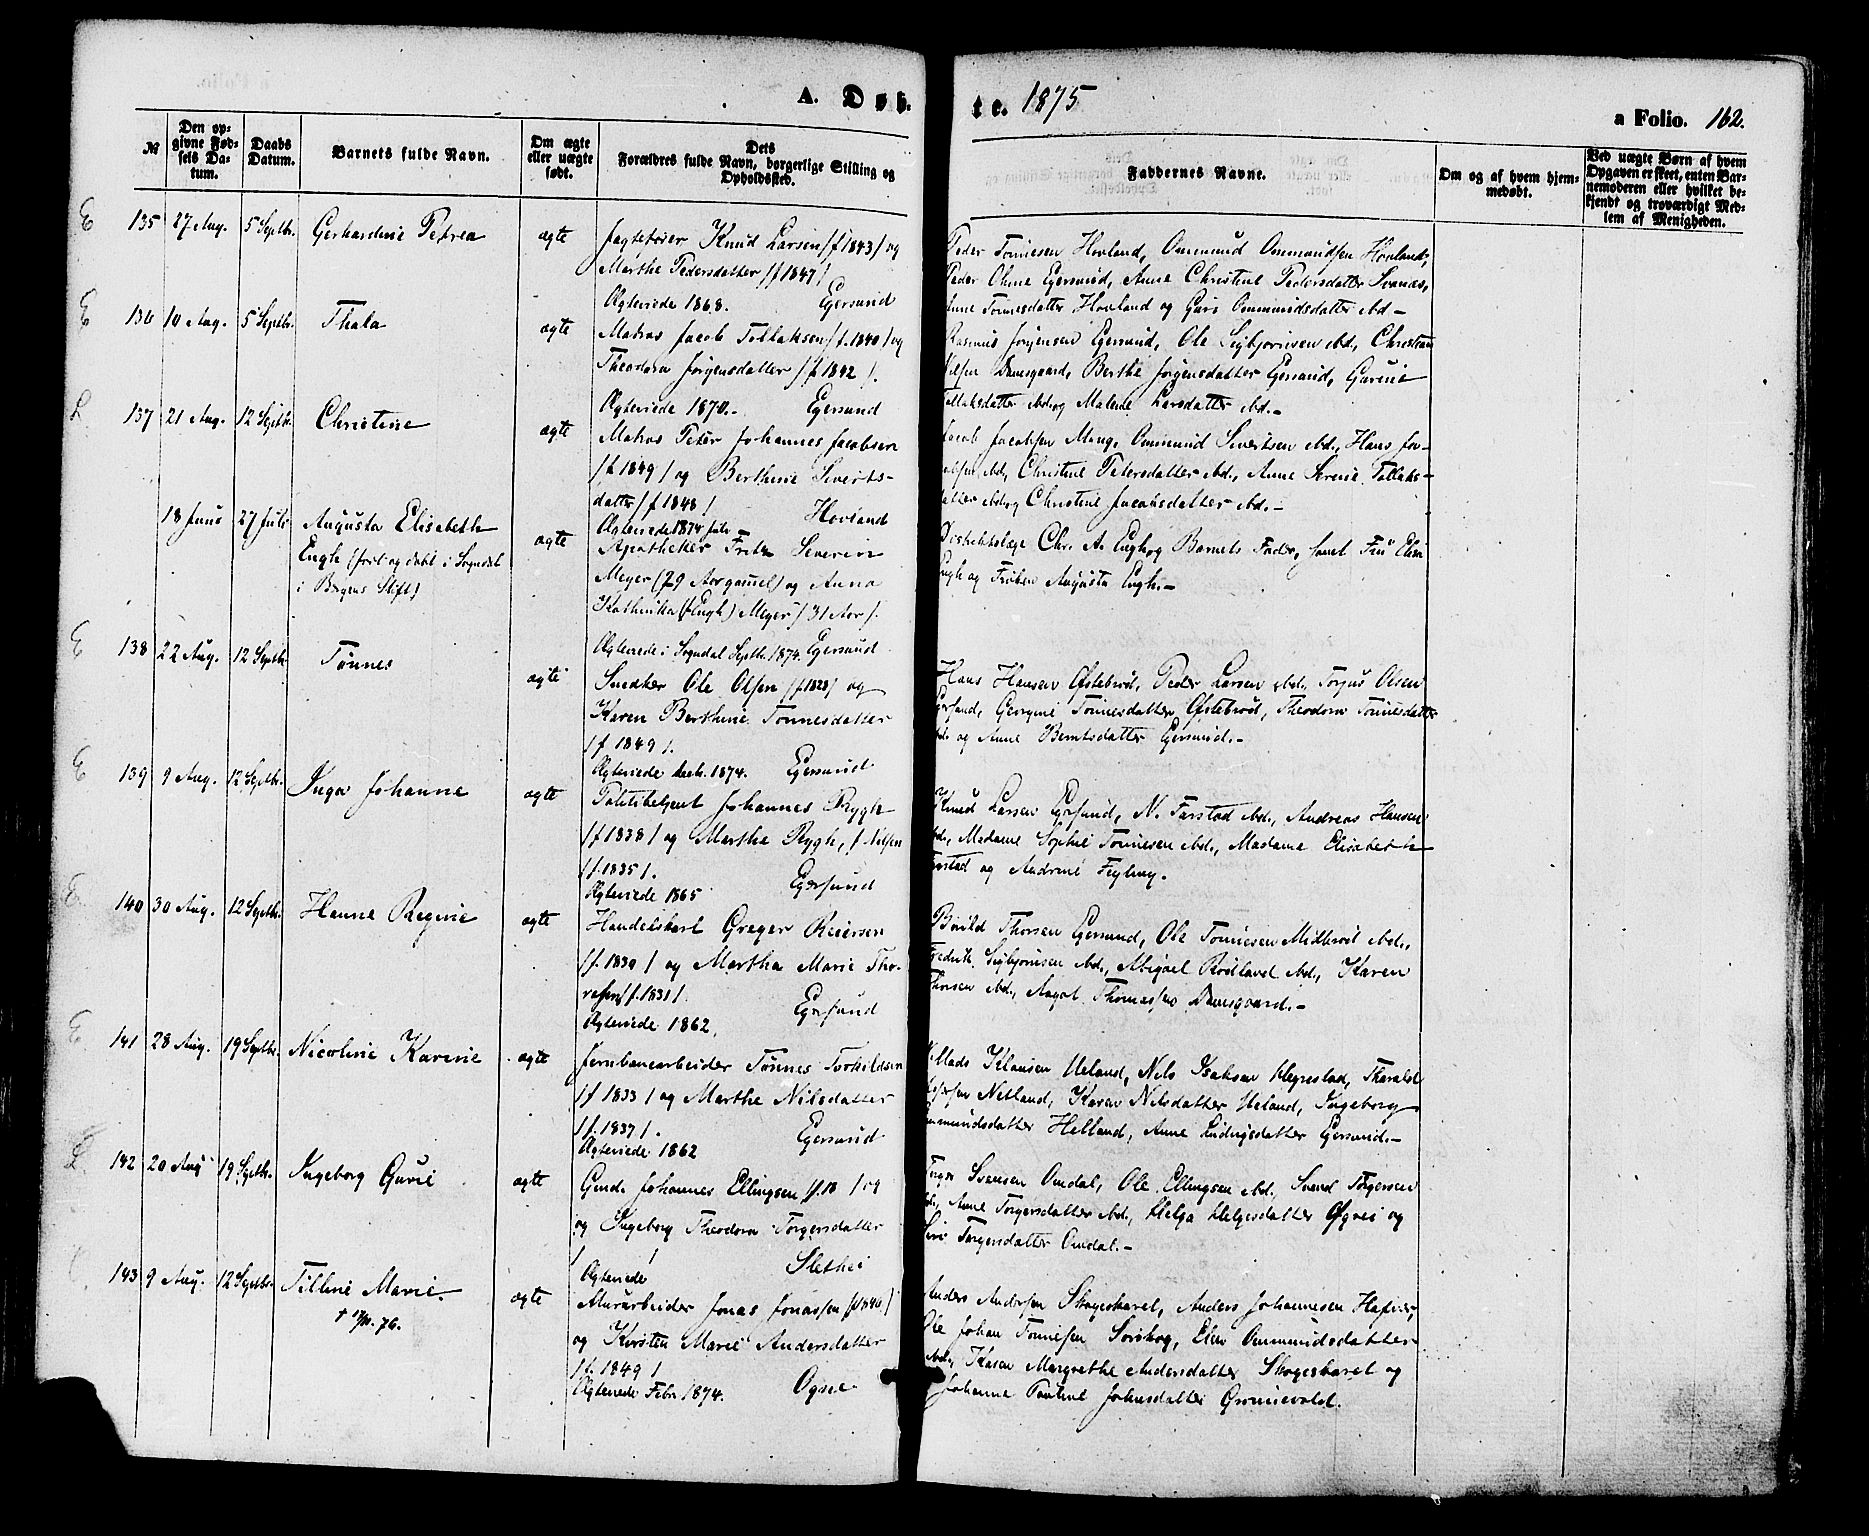 A. Døb-
te. 1875
a Folio. 162.
№
Den op-
givne Fød-
sels Da-
tum.
Daabs
Datum.
Barnets fulde Navn.
Om ægte
eller uægte
født.
Dets
Forældres fulde Navn, borgerlige Stilling og
Opholdssted.
Faddernes Navne.
Om og af hvem hjem-
medøbt.
Ved uægte Børn af hvem
Opgaven er skeet, enten Bar-
nemoderen eller hvilket be-
kjendt og troværdigt Med-
lem af Menigheden.
E 135 27 Aug. 5 Septbr. Gerhardine Petrea ægte
Knud Larsen /f 1843/ og
Marthe Pedersdatter /f 1847/
Ægteviede 1868. Egersund
Peder Tønnesen Hovland, Ommund Ommundsen Hovland,
Peder Ohme Egersund, Anne Christine Pedersdatter Svanæs,
Anne Tønnesdatter Hovland og Guri Ommundsdatter ibd.-
E 136 10 Aug. 5 Septbr. Thala ægte
Matros Jacob Tollaksen /f. 1840/ og
Theodora Jørgensdatter /f 1842/.
Ægteviede 1870.- Egersund
Rasmus Jørgensen Egersund, Ole Sigbjørnsen ibd., Christian
Nilsen Damsgaard, Berthe Jørgensdatter Egersund, Gurine
Tollaksdatter ibd. og Malene Larsdatter ibd.-
L. 137 21 Aug. 12 Septbr. Christine ægte
Matros Peter Johannes Jacobsen
/f 1849/ og Berthine Siverts-
datter /f 1848/ Hovland
Ægteviede 1874 Juli
Jacob Jacobsen Mong, Ommund Sivertsen ibd., Hans Ja-
cobsen ibd., Christine Petersdatter ibd., Anne Serine Tollaks-
datter ibd. og Christine Jacobsdatter ibd.-
18 Juni 27 Juli Augusta Elisabeth
Engh (født og døbt i Sogndal
i Bergens Stift) ægte
Apotheker Fritz Severin
Meyer (29 Aar gammel) og Anna
Kathinka (f Engh) Meyer /31 Aar/.
Ægteviede i Sogndal Septbr. 1874. Egersund
Distriktslæge Chr. A. Engh og Barnets Fader, samt Fru Elise
Engh og Frøken Augusta Engh.-
E 138 22 Aug. 12 Septbr. Tønnes ægte
Snedker Ole Olsen /f 1828/ og
Karen Berthine Tønnesdatter
/f 1849/.
Ægteviede 1874. Egersund
Hans Hansen Østebrød, Peder Larsen ibd., Torjus Olsen
Egersund, Georgine Tønnesdatter Østebrød, Theodora Tønnesdatter
ibd. og Anne Berntsdatter Egersund.-
E 139 9 Aug. 12 Septbr. Inga Johanne ægte
Politibetjent Johannes Rygh
/f 1838/ og Martha Rygh, f Nilsen
/f. 1835/.
Ægteviede 1865 Egersund
Knud Larsen Egersund, N. Tarstad ibd., Andreas Hansen
ibd., Madame Sophie Tønnesen ibd., Madame Elisabeth
Tarstad og Andrine Feyling.
E 140 30 Aug. 12 Septbr. Hanne Regine ægte
Handelskarl Greger Reiersen
/f. 1839/ og Martha Marie Tho-
resen /f. 1831/.
Ægteviede 1862. Egersund
Thorsen Egersund, Ole Tønnesen Midbrød ibd.,
Fredrik Sigbjørnsen ibd., Abigael Rødland ibd., Karen
Thorsen ibd., Thomassen Damsgaard.-
E 141 28 Aug. 19 Septbr. Nicoline Karine ægte
Jernbanearbeider Tønnes Torkildsen
/f 1833/ og Marthe Nilsdatter
/f. 1837/.
Ægteviede 1862 Egersund
Mads Klausen Ueland, Nils Isaksen Hegrestad, Tharald
Netland, Karen Nilsdatter Ueland, Ingeborg
Ommundsdatter Helland, Anne Ludvigsdatter Egersund.-
L. 142 20 Aug 19 Septbr. Ingeborg Gurie ægte
Gmd. Johannes Ellingsen /f. 18 / og
og Ingeborg Theodora Torgersdatter
/ / Slethei
Ægteviede
Torger Svensen Omdal, Ole Ellingsen ibd., Svend Torgersen
ibd., Anne Torgersdatter ibd., Helga Helgesdatter Øgrei og
Siri Torgersdatter Omdal.-
143 9 Aug. 12 Septbr. Tilline Marie.
† 17/11. 76. ægte
Murarbeider Jonas Jonassen /f 1840/
og Kirsten Marie Andersdatter
/f. 1849/
Ægteviede Febr 1874. Ogne
Anders Andersen Skogeskaret, Anders Johannesen
Ole Johan Tønnesen Sørskog, Elen Ommundsdatter
ibd., Karen Margrethe Andersdatter Skogeskaret og
Johanne Pauline Johnsdatter Grønnevold.